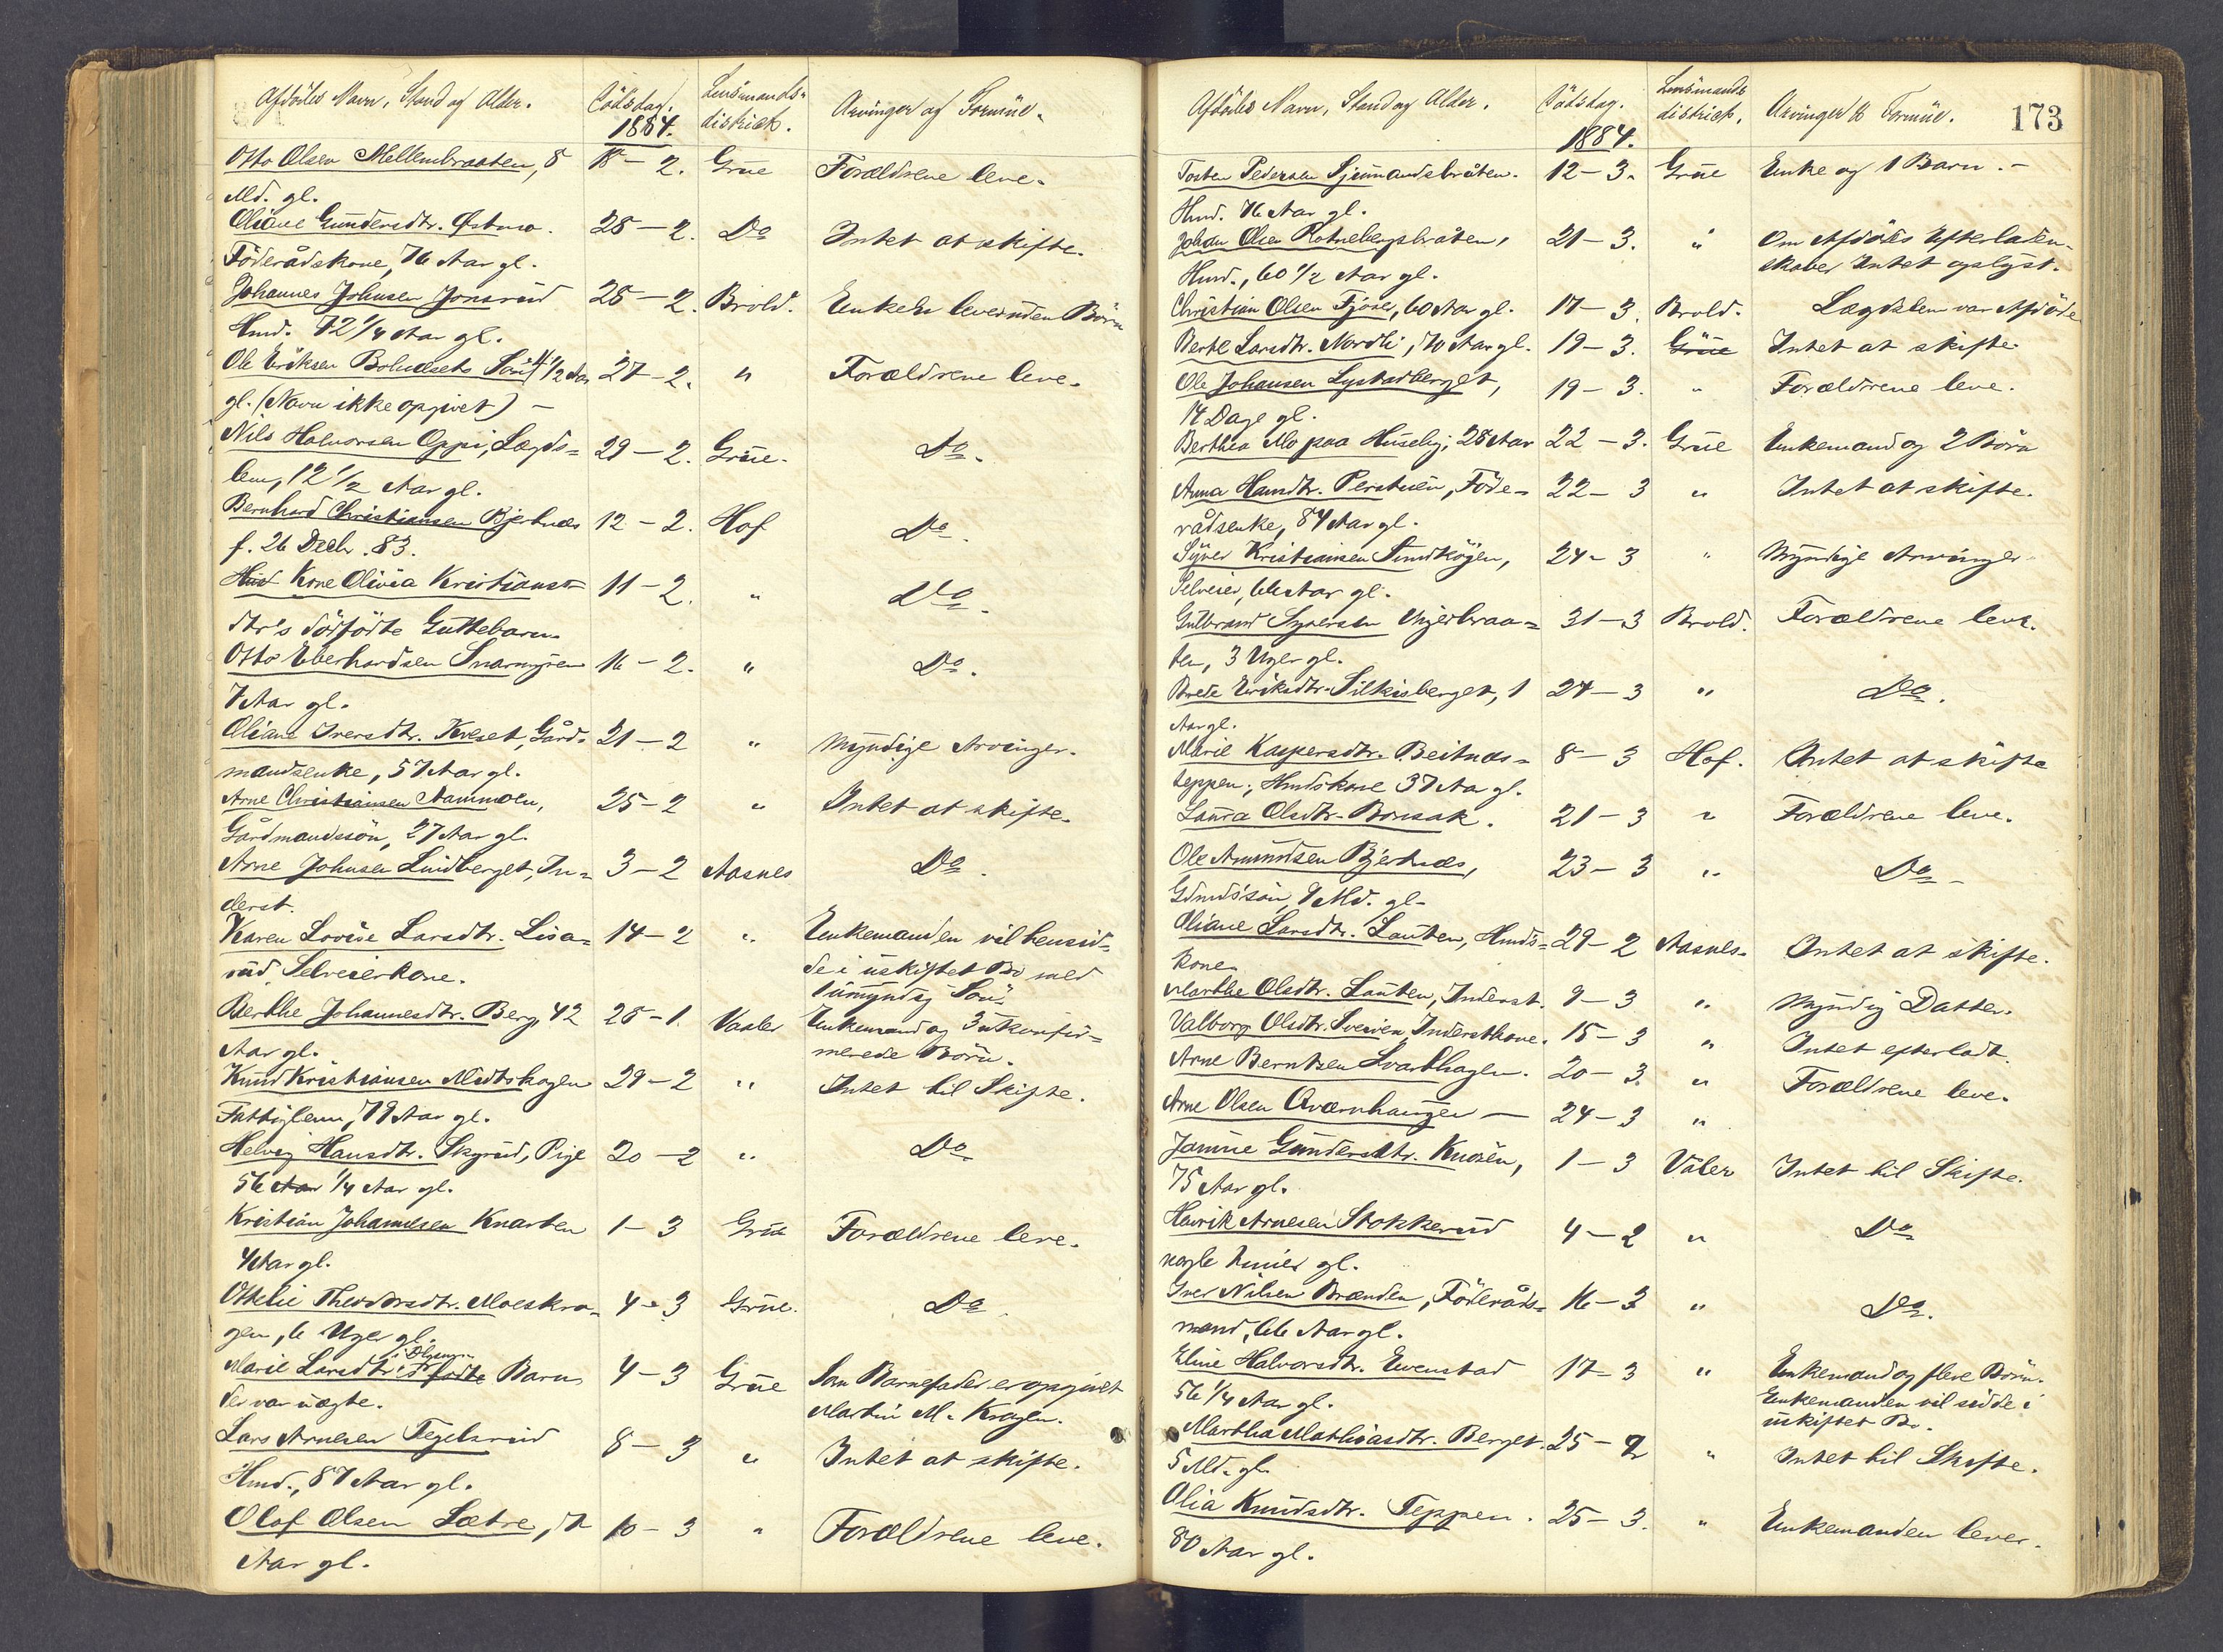 Afdödes Navn, Stand og Alder. Dödsdag. 1884. Lensmandsdistrict. Arvinger og Formue.
Otto Olsen Mellembraaten, 8 18-2. Grue Forældrene leve.
Md. gl.
Oliane Gundersdtr. Östmo. 28-2. Do Intet at skifte.
Föderådskone, 76 Aar gl.
Johannes Johnsen Jonsrud 28-2. Brold. Enke Börn
Hmd. 72 1/4 Aar gl.
Ole Eriksen Bolnæsets Sön 1/2 Aar 27-2. " Forældrene leve.
gl. (Navn ikke opgivet) -
Nils Halvorsen Oppi, Lægds= 29-2. Grue. Do.
lem, 12 1/2 Aar gl.
Bernhard Christiansen Bjerknes 12-2. Hof Do.
f. 26 Decbr. 83.
Kone Olivia Kristians= 11-2. " Do.
dtr's dödfödte Guttebarn.
Otto Eberhardsen Snarmyren 16-2. " Do.
7 Aar gl.
Oliane Iversdtr. Kveset, Gård= 21-2 " Myndige Arvinger.
mandsenke, 57 Aar gl.
Arne Christiansen Nammoen, 25-2 " Intet at skifte.
Gårdmandssön, 27 Aar gl.
Arne Johnsen Lindberget, In= 3-2 Aasnes Do.
derst.
Karen Lovise Larsdtr. Lisa= 14-2 " Enkemanden vil hensid=
rud Selveierkone. de i uskiftet Bo med
1 umyndig Sön.
Berthe Johannesdtr. Berg, 42 28-1. Vaaler Enkemand og 3 ukonfir=
Aar gl. merede Börn.
Knud Kristiansen Midtskogen 29-2 " Intet til Skifte.
Fattiglem, 79 Aar gl.
Helvig Hansdtr. Skyrud, Pige 20-2 " Do
56 Aar 1/4 Aar gl.
Kristian Johannesen Knarten 1-3 Grue Forældrene leve.
4 Aar gl.
Othelie Theodorsdtr. Moeskro= 4-3 Grue. Do.
gen, 6 Uger gl.
Marie Larsdtr. Barn 4-3 Grue Som Barnefader er opgivet
der var uægte. Martin M. Krogen.
Lars Arnesen Tegelsrud 8-3 " Intet at skifte.
Hmd., 87 Aar gl.
Olof Olsen Sætre, 10-3 " Forældrene leve.
Aar gl.
Afdödes Navn, Stand og Alder. Dödsdag. 1884. Lensmandsdistrict. Arvinger & Formue. 173
Torsten Pedersen Sjumandsbråten. 12-3. Grue Enke og 1 Barn. -
Hmd. 76 Aar gl.
Johan Olsen Rotnebergsbråten, 21-3. " Om Afdödes Efterladen=
Hmd., 60 1/2 Aar gl. skaber Intet oplyst.
Christian Olsen Fjöser, 60 Aar gl. 17-3. Brold. Lægdslem var Afdöde
Berte Larsdtr. Nordli, 70 Aar gl. 19-3. Grue Intet at skifte
Ole Johansen Lystadberget, 19-3. " Forældrene leve.
14 Dage gl.
Berthea Mo paa Huseby, 28 Aar 22-3. Grue Enkemand og 2 Börn
Anna Hansdtr. Perstuen, Föde= 22-3 " Intet at skifte.
rådsenke, 84 Aar gl.
Syver Kristiansen Sundkögen, 24-3 " Myndige Arvinger
Selveier, 66 Aar gl.
Gulbrand Syversen Unjerbraa= 31-3 Brold. Forældrene leve.
ten, 3 Uger gl.
Brede Eriksdtr. Silkisberget, 1 27-3 " Do.
Aar gl.
Marie Kaspersdtr. Beitnæs= 8-3 Hof. Intet at skifte
teppen, Hmdskone 37 Aar gl.
Laura Olsdtr. Bousak. 21-3 " Forældrene leve.
Ole Amundsen Bjerknes, 23-3 " Do -
Gdmdssön, 9 Md. gl.
Oliane Larsdtr. Lauten, Hmds= 29-2 Aasnes. Intet at skifte.
kone.
Marthe Olsdtr. Lauten, Inderst. 9-3 " Myndig Datter.
Valborg Olsdtr. Sveien Inderstkone. 15-3 " Intet efterladt.
Arne Berntsen Svarthagen. 20-3. " Forældrene leve.
Arne Olsen Qværnhaugen - 24-3 "
Janine Gundersdtr. Knoien, 1-3 Våler Intet til Skifte.
75 Aar gl.
Henrik Arnesen Stokkerud 4-2 " Do
nogle gl.
Iver Nilsen Brænden, Föderåds= 16-3 " Do.
mand, 66 Aar gl.
Eline Halvorsdtr. Evenstad 17-3 " Enkemand og flere Börn.
56 1/4 Aar gl. Enkemanden vil sidde i
uskiftet Bo.
Martha Mathiasdtr. Berget. 25-2 " Intet til Skifte.
5 Md. gl.
Olia Knudsdtr. Teppen. 25-3. " Enkemanden lever.
80 Aar gl.